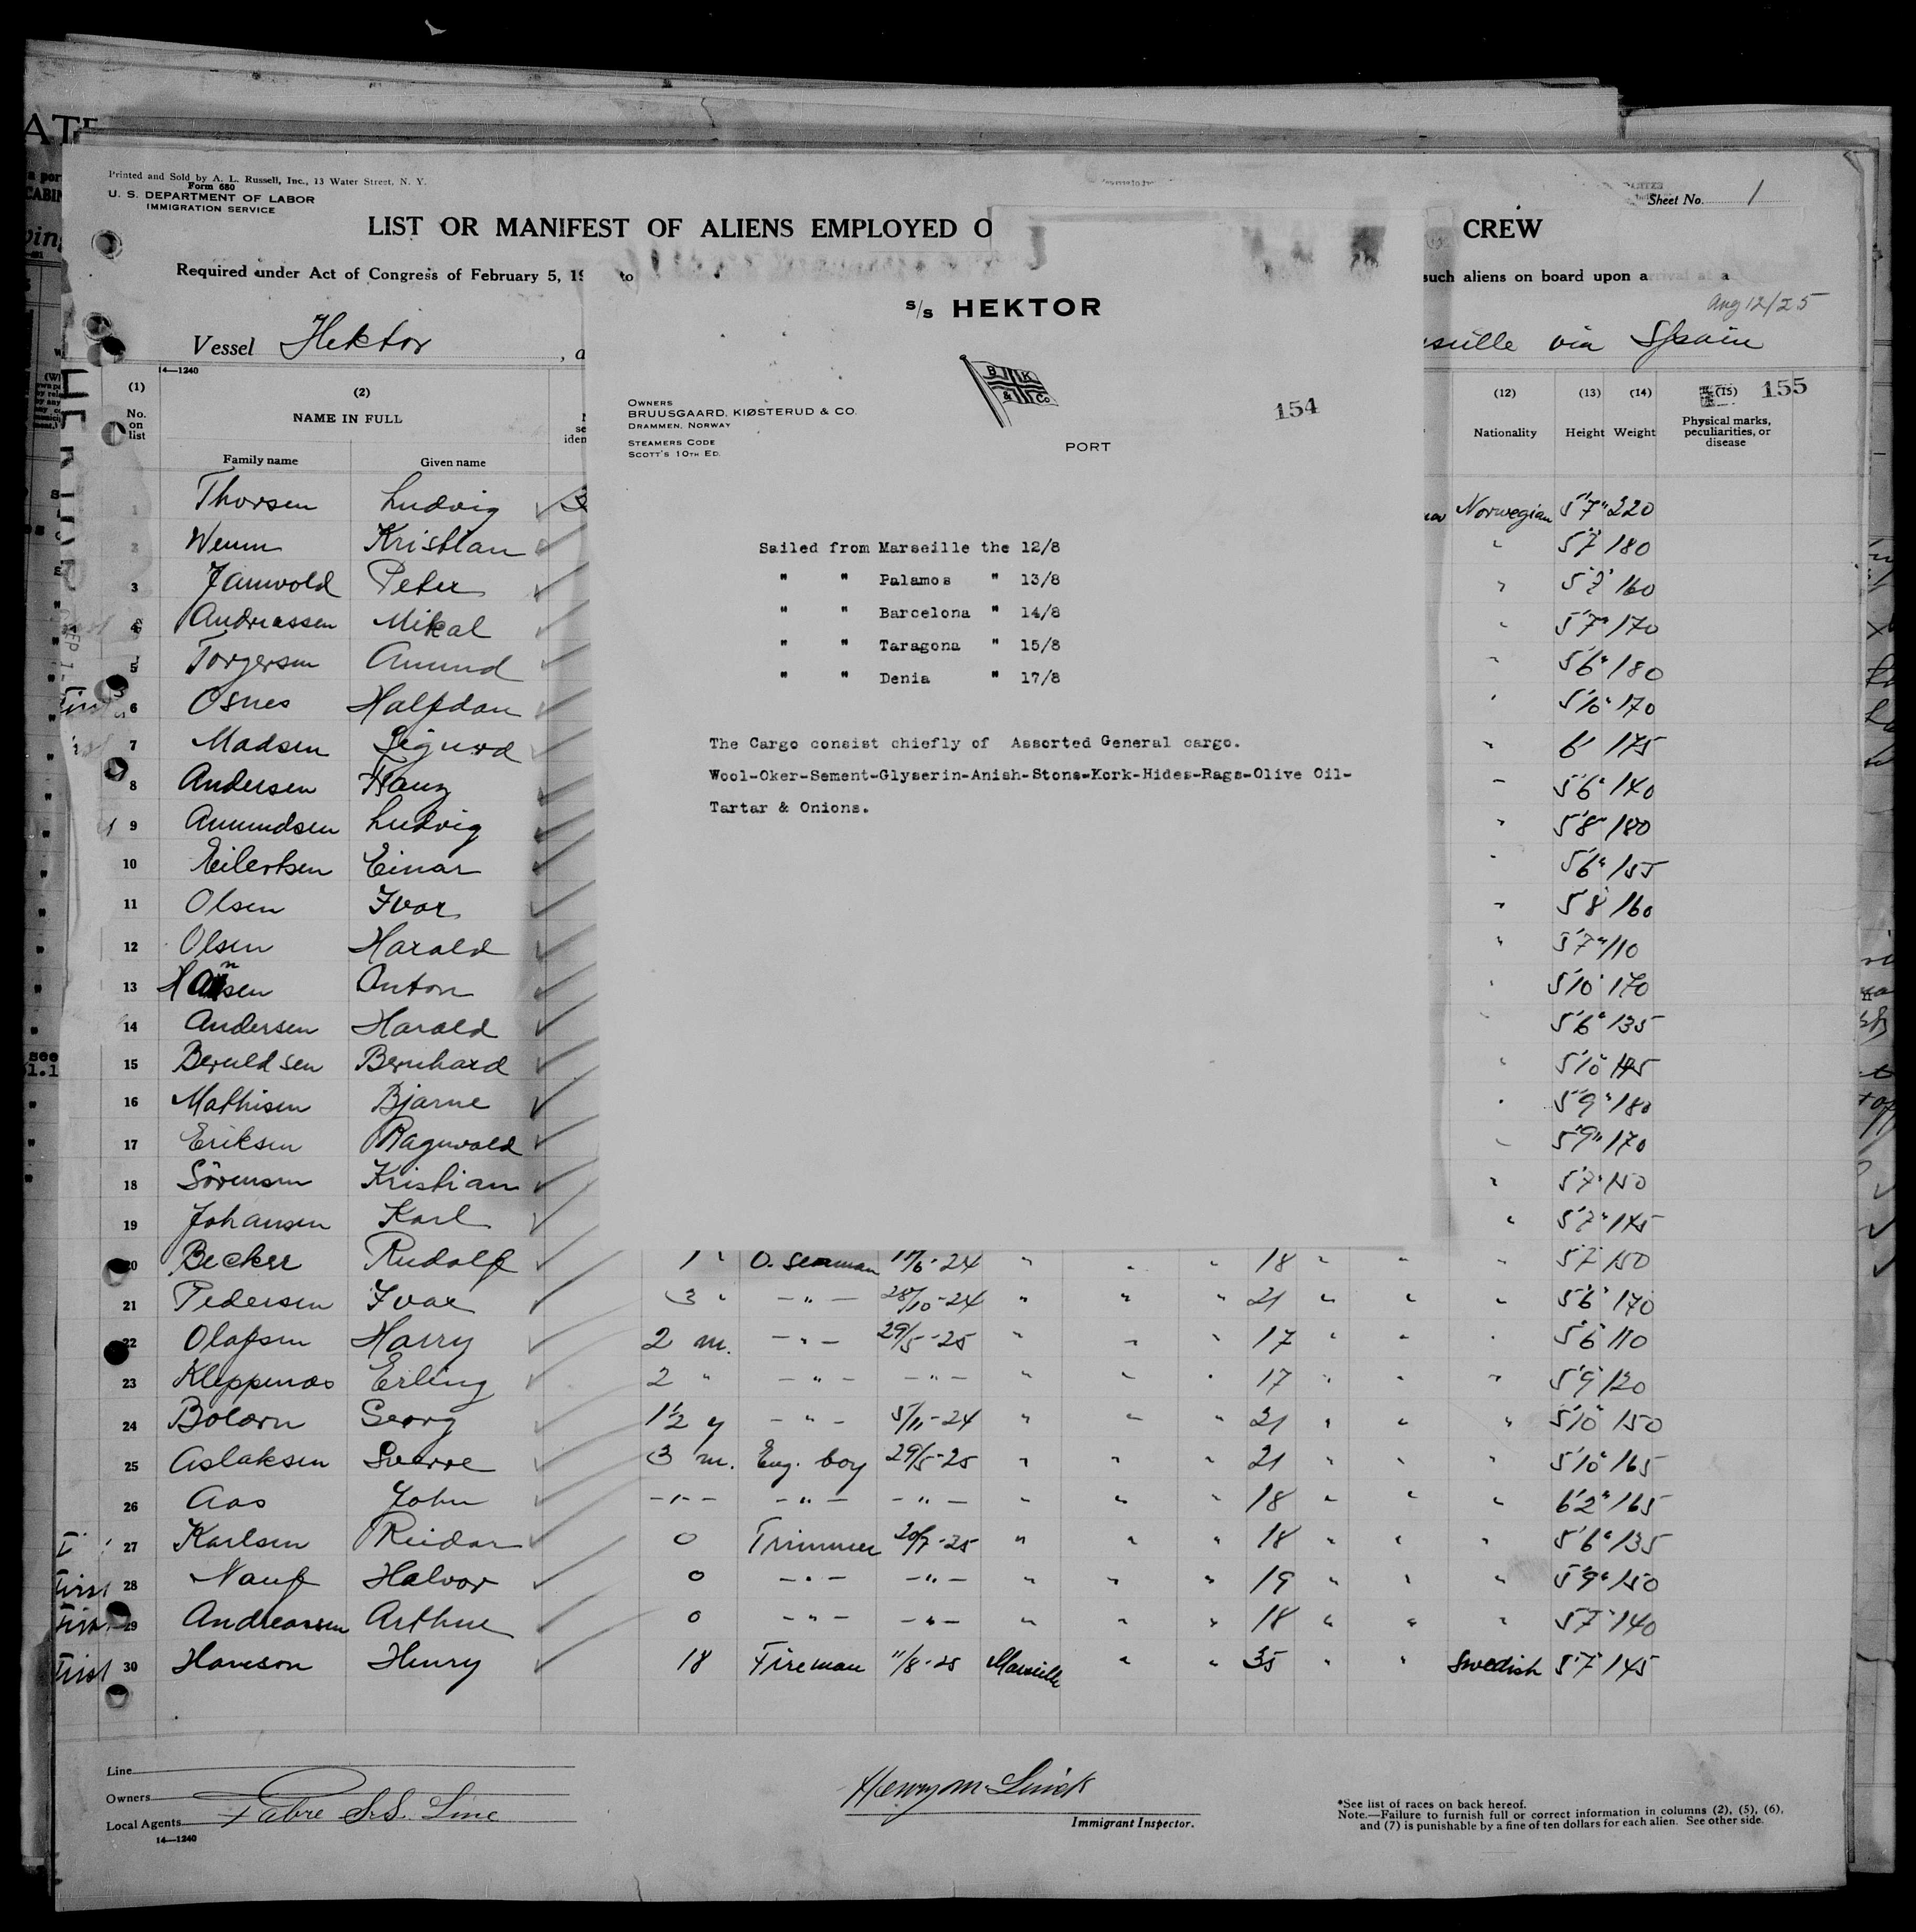 Printed and Sold by A. L. Russell, Inc., 13 Water Street, N. Y.
Form 680
U. S. DEPARTMENT OF LABOR
IMMIGRATION SERVICE
Sheet No. 1
LIST OR MANIFEST OF ALIENS EMPLOYED O
CREW
Required under Act of Congress of February 5, 19 to
such aliens on board upon arrival at a
Aug 12/25
Vessel Hektor , a
via Spain
14—1240
155
(1) (2) (12) (13) (14) (15)
No. on list
NAME IN FULL
Family name Given name
Nationality Height Weight Physical marks, peculiarities, or disease
S/S HEKTOR
B K & Co
OWNERS
BRUUSGAARD, KIØSTERUD & CO.
DRAMMEN, NORWAY
STEAMERS CODE
SCOTT'S 10TH ED.
154
PORT
Sailed from Marseille the 12/8
" " Palamos " 13/8
" " Barcelona " 14/8
" " Taragona " 15/8
" " Denia " 17/8
The Cargo consist chiefly of Assorted General cargo.
Wool-Oker-Sement-Glyserin-Anish-Stons-Kork-Hides-Rags-Olive Oil-
Tartar & Onions.
1 Thorsen Ludvig Norwegian 5'7" 220
2 Wenm Kristian " 5'7" 180
3 Peter " 5'7" 160
4 Andreassen Mikal " 5'7" 170
5 Torgersen Amund " 5'6" 180
6 Osnes Halfdan " 5'10" 170
7 Madsen Sigurd " 6' 175
8 Andersen Hans " 5'6" 140
9 Amundsen Ludvig " 5'8" 180
10 Eilertsen Einar " 5'6" 155
11 Olsen Ivar " 5'8" 160
12 Olsen Harald " 5'7" 110
13 Hansen Anton " 5'10" 170
14 Andersen Harald " 5'6" 135
15 Beruldsen Bernhard " 5'10"
16 Mathisen Bjarne " 5'9" 180
17 Eriksen Ragnvald " 5'9" 170
18 Sörensen Kristian " 5'7" 150
19 Johansen Karl " 5'7" 145
20 Becker Rudolf 1 " O. Seaman 17/6-24 " " " 18 " " " 5'7" 150
21 Pedersen Ivar 3 " —"— 28/10-24 " " " 21 " " " 5'6" 170
22 Olafsen Harry 2 m. —"— 29/5-25 " " " 17 " " " 5'6" 110
23 Kleppenes Erling 2 " —"— —"— " " " 17 " " " 5'9" 120
24 Georg 1½ y —"— 5/11-24 " " " 21 " " " 5'10" 150
25 Aslaksen Sverre 3 m. Eng. boy 29/5-25 " " " 21 " " " 5'10" 165
26 Aas John —"— —"— —"— " " " 18 " " " 6'2" 165
27 Karlsen Reidar 0 Trimmer 20/7-25 " " " 18 " " " 5'6" 135
First 28 Nauf Halvor 0 —"— —"— " " " 19 " " " 5'9" 150
First 29 Andreassen Arthur 0 —"— —"— " " " 18 " " " 5'7" 140
First 30 Hanson Henry 18 Fireman 11/8-25 Marseille " " 35 " " Swedish 5'7" 145
Line
Owners
Local Agents Fabre S.S. Line
14—1240
Immigrant Inspector.
*See list of races on back hereof.
Note.—Failure to furnish full or correct information in columns (2), (5), (6),
and (7) is punishable by a fine of ten dollars for each alien. See other side.